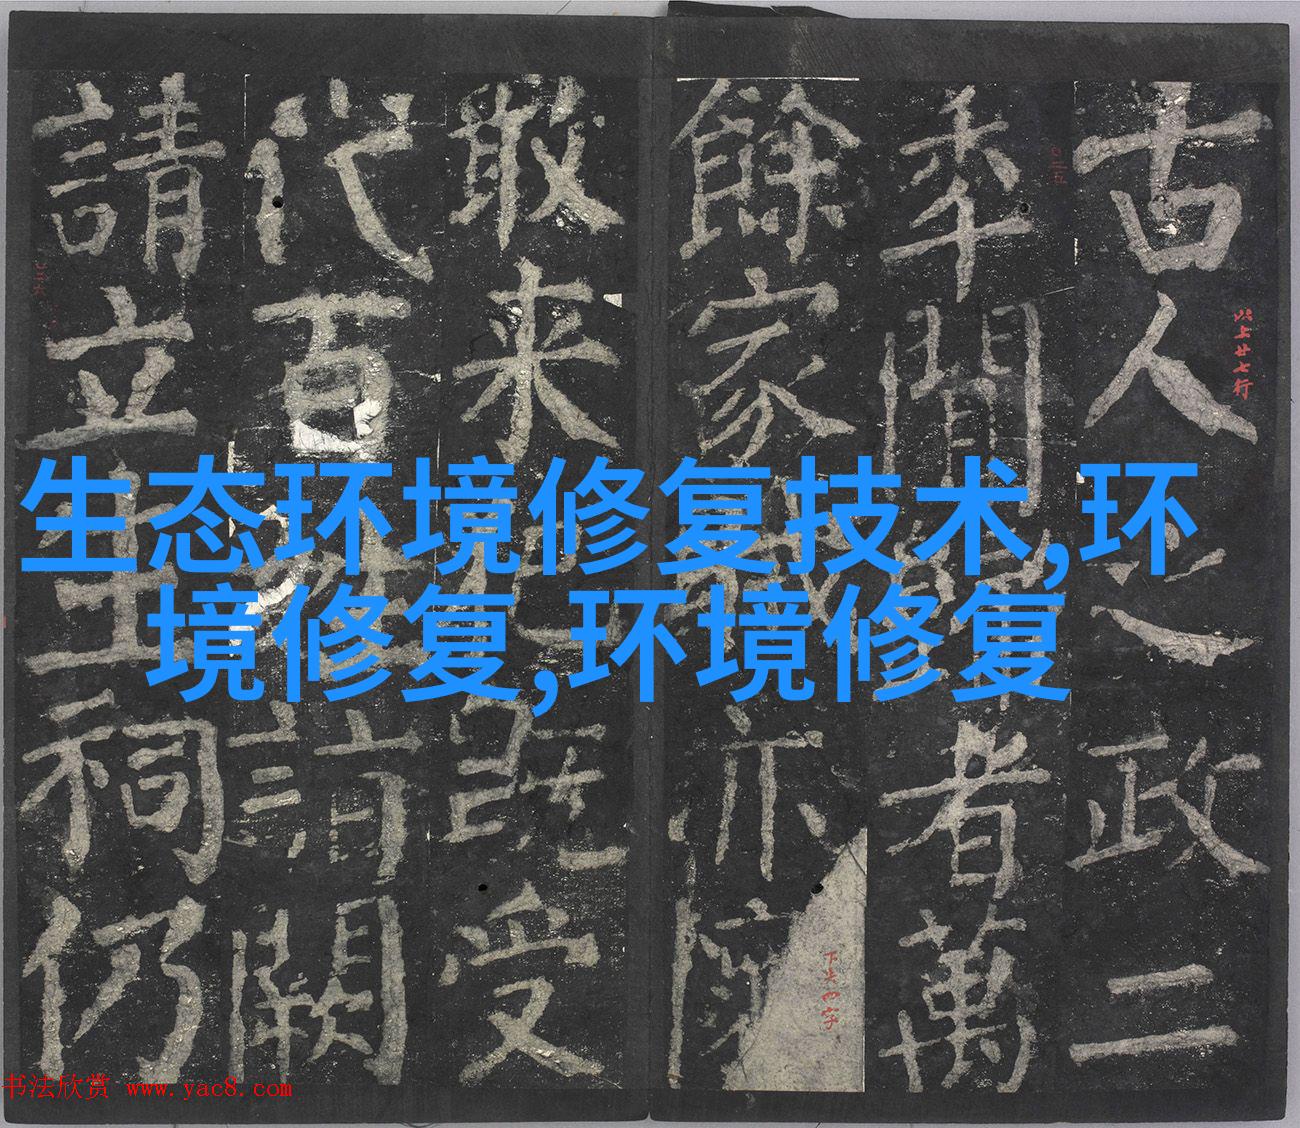 古人之政二
年閒歸者萬
餘家賊亦懷
敢来犯既受
代百姓詣闕
請立生祠仍
以上廿七行
下失四字
生态环境修复技术,环
境修复,环境修复
书法欣赏 www.yac8.com